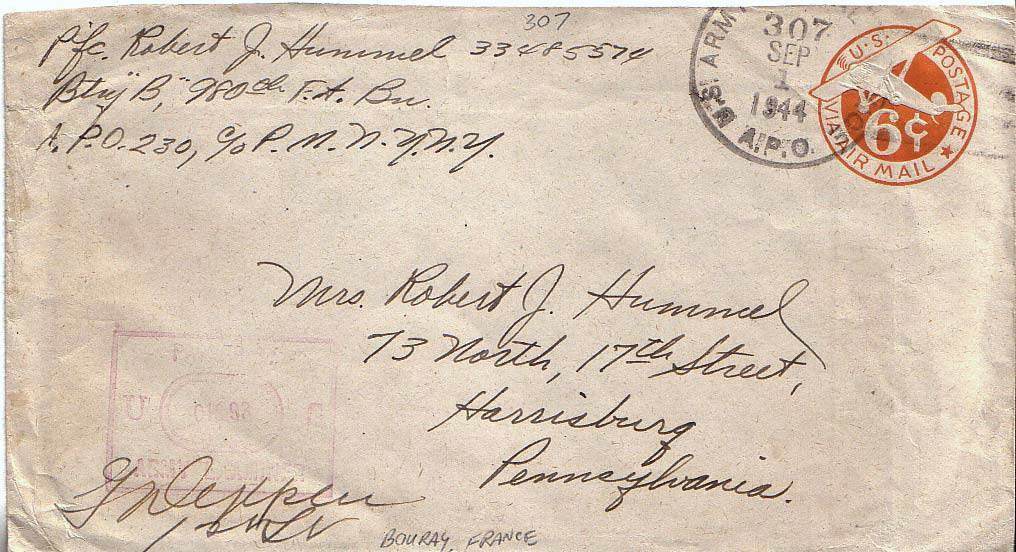 307
Pfc. Robert J. Hummel 33485574
Btry "B", 980th F.A. Bn.
A.P.O. 230, c/o P.M. N.Y. N.Y.
U.S. ARMY
307
SEP
1
1944
A.P.O.
U.S. POSTAGE
6¢
VIA AIR MAIL
Mrs. Robert J. Hummel
73 North, 17th Street,
Harrisburg
Pennsylvania.
1st Lt
BOURAY, FRANCE